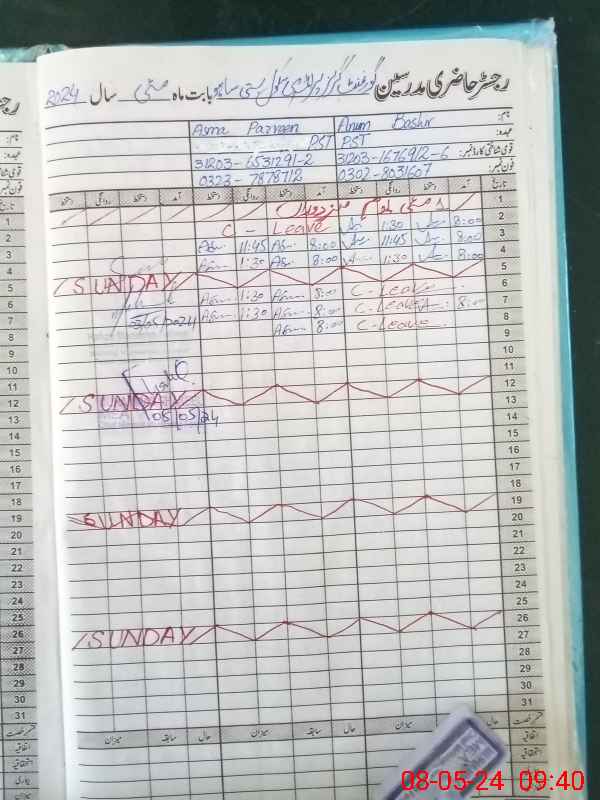 رجسٹر حاضری مدرسین گورنمنٹ گرلز پرائمری سکول بستی ساہو بابت ماہ مئی سال 2024
نام: Anum Bashir Asma Parveen
عہدہ: PST PST
قومی شناختی کارڈ نمبر: 31203-1676912-6 31203-6531291-2
فون نمبر: 0302-8031607 0323-7878712
تاریخ آمد دستخط روانگی دستخط آمد دستخط روانگی دستخط آمد دستخط روانگی دستخط
1 یکم مئی
2 8:00 1:30 C - Leave
3 8:00 11:45 8:00 11:45
4 8:00 1:30 8:00 1:30
5 SUNDAY
6 C-Leave 8:00 1:30
7 8:00 C-Leave 8:00 1:30
8 C-Leave 8:00
9
10
11
12 SUNDAY
13
05/05/24
14
15
16
17
18
19 SUNDAY
20
21
22
23
24
25
26 SUNDAY
27
28
29
30
31
میزان حال سابقہ میزان حال سابقہ میزان
اتفاقیہ
استحقاقیہ
بیماری
08-05-24 09:40